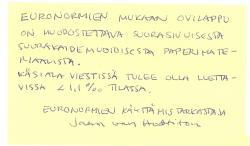 EURONORMIEN MUKAAN OVILAPPU
ON MUODOSTETTAVA SUORASIVUISESTA
SUORAKAIDEMUODOISESTA PAPERIMATE-
RIAALISTA.
KÄSIALA VIESTISSÄ TULEE OLLA LUETTA-
VISSA < 1,1 ‰ TILASSA.
EURONORMIEN KÄYTTÄMISTARKASTAJA